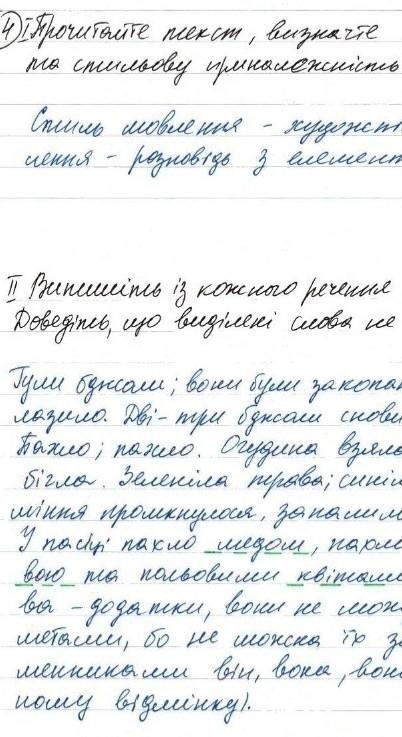 4) I Прочитайте текст, визначте
та стильову приналежність
Стиль мовлення - художн
лення - розповідь з елемент
II Випишіть із кожного речення
Доведіть, що виділені слова не
Гули бджоли; вони були закопа
лазило. Дві-три бджоли снови
Пахло; пахло. Огудина взяла
бігла. Зеленіла трава; синіл
міння промкнулося, запалим
У пасіці пахло медом, пахл
вою та польовими квітами
ва - додатки, вони не мож
метами, бо не можна їх за
менниками він, вона, вон
ному відмінку).